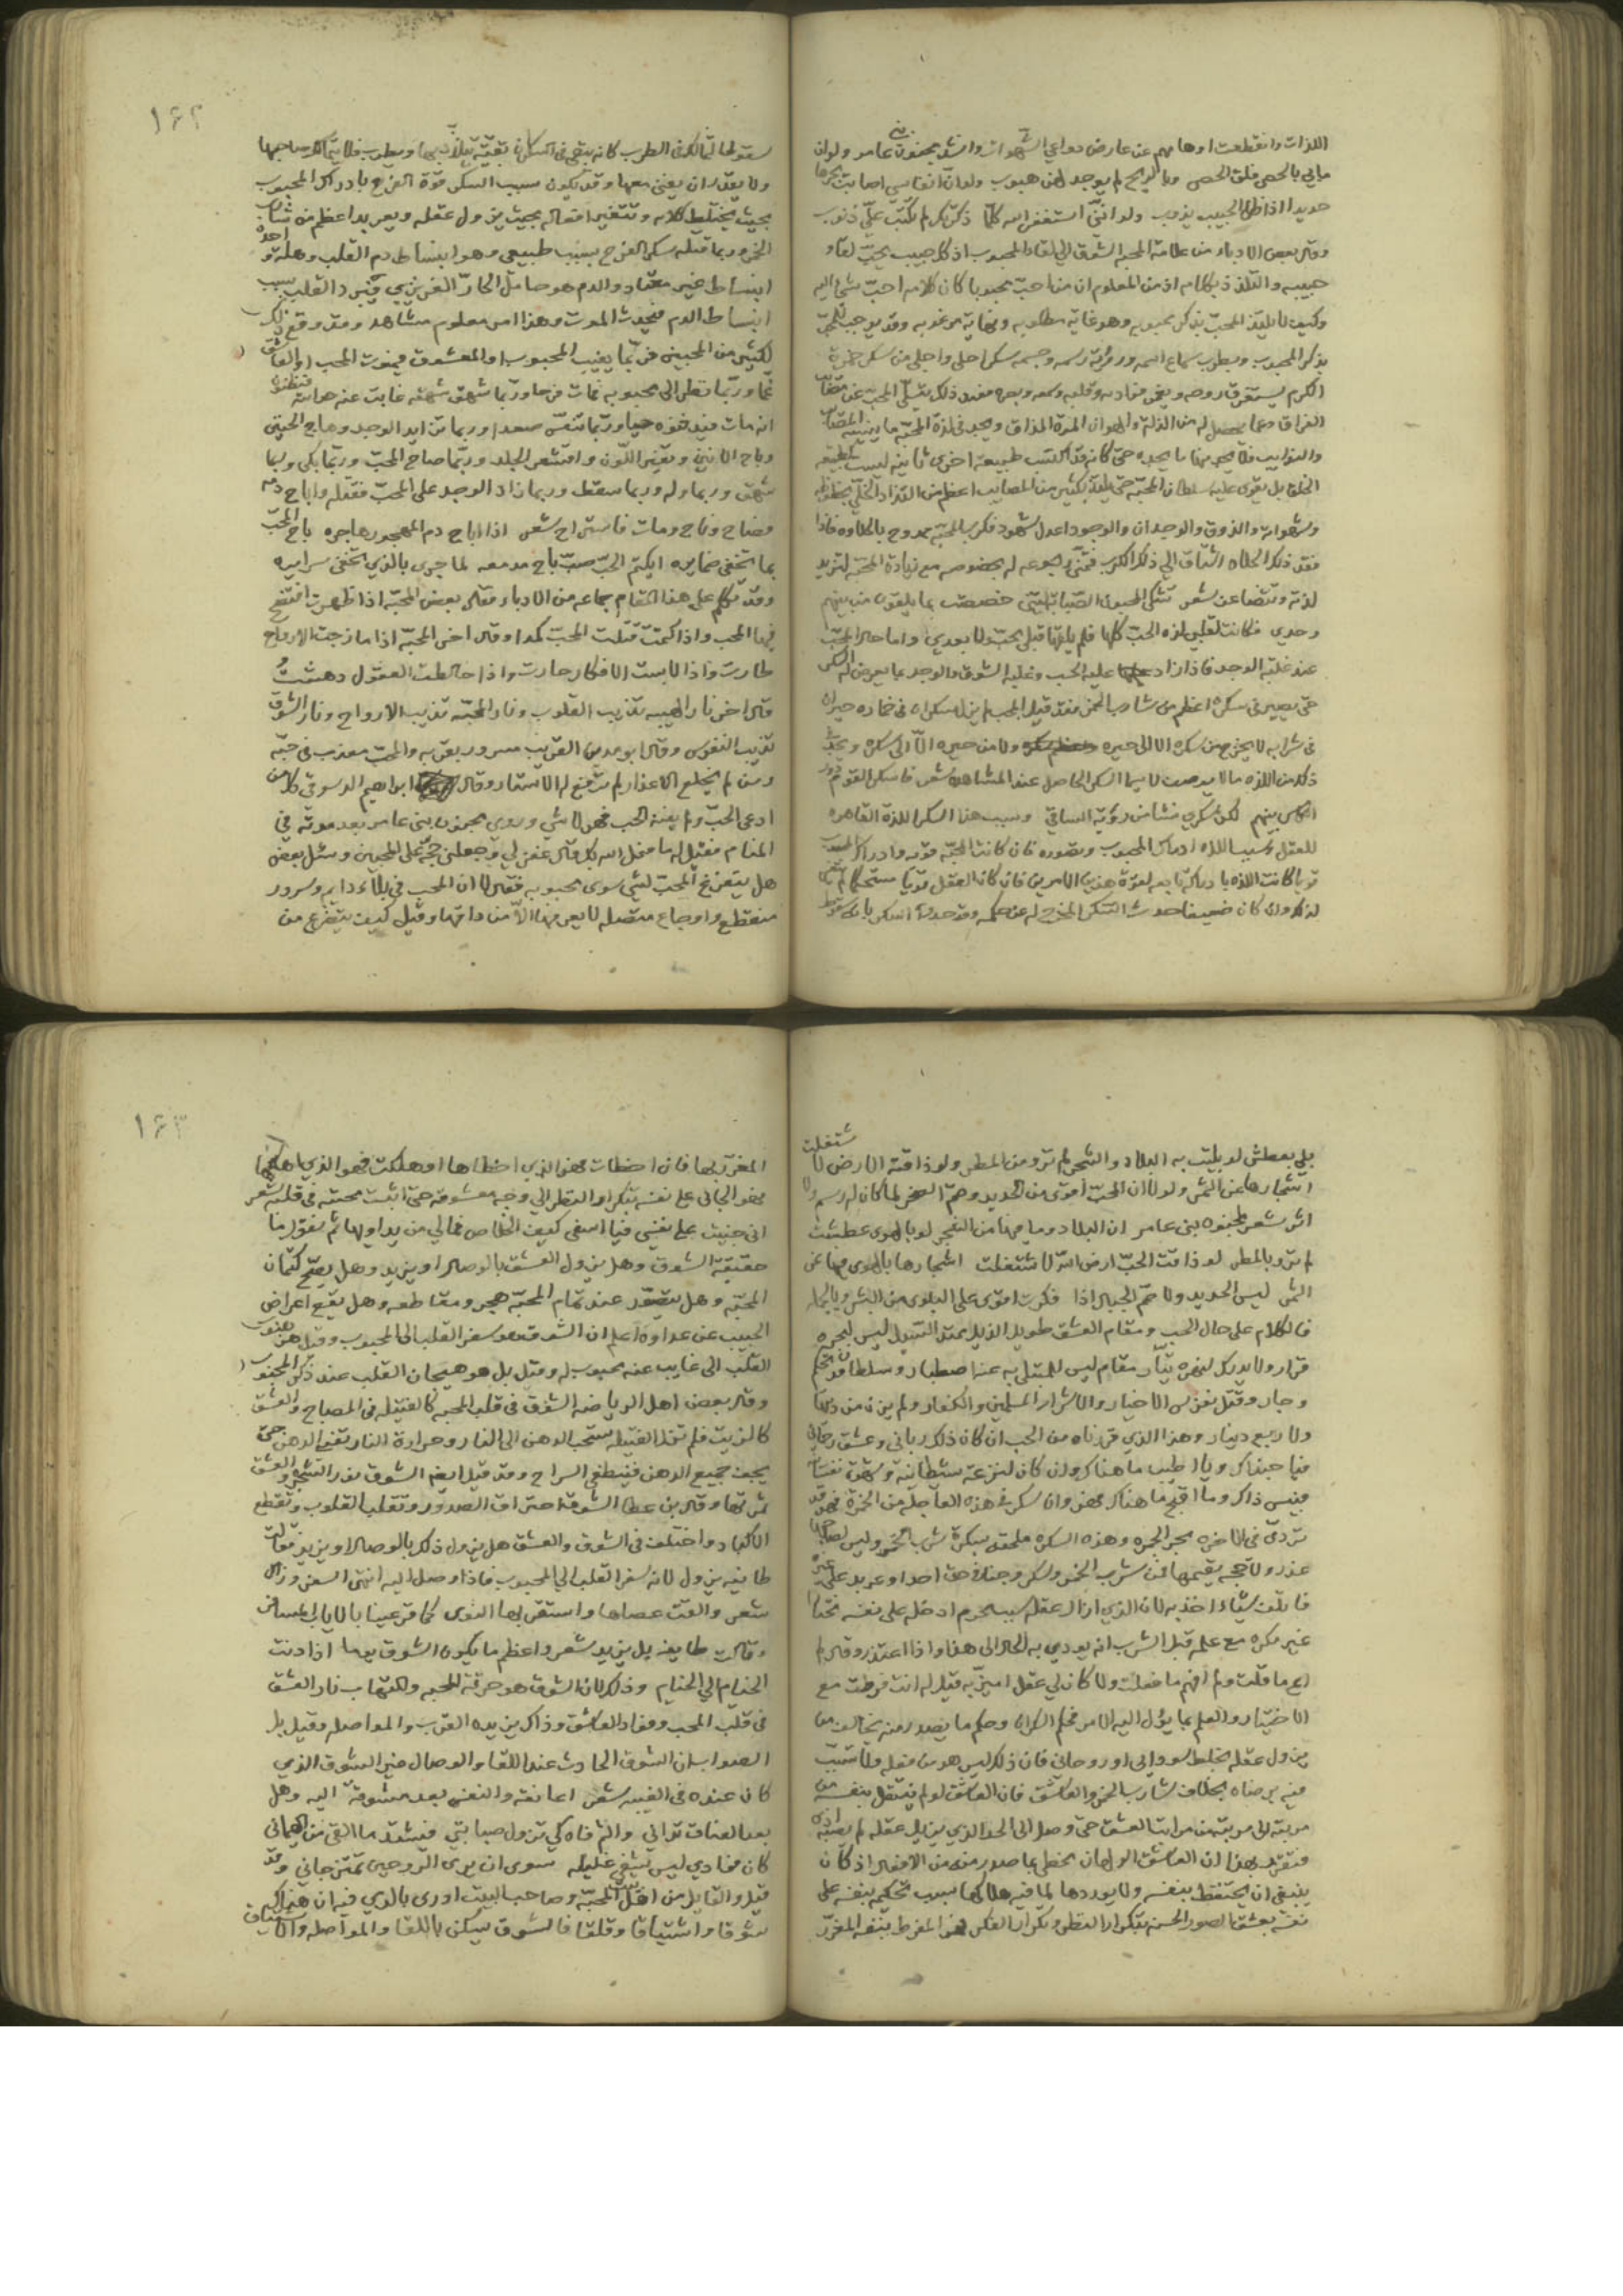 اللذات وانقطعت اوهامهم عن عارض دواعي الشهوات وانشد مجنون بني عامر ولوان
مابي بالحصى فلق الحصى وبالريح لم يوجد لهن هبوب ولو ان انفاسي اصابت بحرها
حديدا اذا ظل الحبيب يذوب ولو انني استغفر الله كلما ذكرتكم لم تكتب علي ذنوب
وقال بعض الادباء من علامة المحبة الشوق الى لقاء المحبوب اذ كل حبيب يحب لقاء
حبيبه والتلذذ بكلامه اذ من المعلوم ان من احب محبوبا كان كلامه احب شي اليه
وكيف لا يلتذ المحب بذكر محبوبه وهو غاية مطلوبه ونهاية مرغوبه
بذكر المحبوب ويطرب سماع اسمه ورؤية رسمه وجسمه سكرا احلى واجلى من سكر خمرة
الكرم يستغرق روحه وقلبه وسمعه وبصره فعند ذلك يتسلى المحب عن
الفراق وعما يحصل له من الذلة والهوان المرة المذاق ويجد في لذة المحبة ما ينسيه المصائب
حتى كانه قد اكتسب طبيعة اخرى ثانية ليست كطبيعة
الخلق بل يقوى عليه سلطان المحبة حتى يلتذ بكثير من المصايب اعظم من التذاذ الخلي بحظوظه
وشهواته والذوق والوجدان والوجود اعدل شهود فكرب المحبة ممزوج بالحلاوة فاذا
فقد ذلك الحلاوة اشتاق الى ذلك الكرب
لذته شعر تشكى المحبون الصبابة ليتني خصصت بما يلقون من بينهم
وحدي فكانت لقلبي لذة الحب كلها فلم يلقها قبلي محب ولا بعدي واما حال المحب
عند غلبة الوجد فاذا زاد عليه الحب وغلبه الشوق والوجد بما يعرض له السكر
حتى يصير في سكره اعظم من شارب الخمر فقد قيل المحب ابدا سكران في خماره حيران
في شرابه لا يخرج من سكره الا الى حيره ولا من حيره الا الى سكره ويجد
ذلك من اللذه ما لا يوصف لا سيما السكر الحاصل عند المشاهدة شعر فاسكر القوم دور
الكاس بينهم لكن سكري نشا من رؤية الساقي وسبب هذا السكر اللذة القاهره
للعقل وسبب اللذه ادراك المحبوب وتصوره فان كانت المحبة قوية وادراك المحبوب
قويا كانت اللذه بادراكه تابعه لقوة هذين الامرين فان كان العقل قويا مستحكما لم يتغير
لذلك وان كان ضعيفا حدث السكر المخرج له عن حكمه وقد حدوا السكر بانه
ولا يقدر ان يفنى معها وقد يكون سبب السكر قوة الفرح بادراك المحبوب
بحيث يختلط كلامه وتتغير افعاله بحيث يزول عقله ويعربد اعظم من شارب
الخمر وربما قتله سكر الفرح بسبب طبيعي وهو انبساط دم القلب وهلة واحدة
انبساط غير معتاد والدم هو حامل الحار الغريزي فيبرد القلب بسبب
انبساط الدم فيحدث الموت وهذا امر معلوم مشاهد وقد وقع ذلك
لكثير من المحبين فربما يغيب المحبوب او المعشوق فيموت المحب او العاشق
غما وربما نظر الى محبوبه فمات فرحا وربما شهق شهقة غابت عنه حواسه فيظن
انه مات فيدفنوه حيا وربما تنفس صعدا وربما تزايد الوجد وهاج الحنين
وباح الانين وتغير اللون واقشعر الجلد وربما صاح المحب وربما بكى وربما
شهق وربما وله وربما سقط وربما زاد الوجد على المحب فقتله واباح دمه
فصاح وناح ومات فاستراح شعر اذا اباح دم المهجور هاجره باح المحب
بما تخفي ضمايره ايكتم الحب صب باح مدمعه لما جرى بالذي تخفى سرايره
وقد تكلم على هذا المقام جماعه من الادباء فقال بعض المحبة اذا ظهرت افتضح
فيها المحب واذا كتمت قتلت المحب كمدا وقال اخر المحبة اذا مازجت الارواح
طارت واذا لابست الافكار حارت واذا خالطت العقول دهشت
قال اخر نار الهيبه تذيب القلوب ونار المحبه تذيب الارواح ونار الشوق
تذيب النفوس وقال ابو مدين القريب مسرور بقربه والمحب معذب في حبه
ومن لم يخلع الاعذار لم ترفع له الاستار وقال ابراهيم الدسوقي كل من
ادعى الحب ولم يفنه الحب فهو لا شي وروي مجنون بني عامر بعد موته في
المنام فقيل له ما فعل الله بك قال غفر لي وجعلني حجة على المحبين وسئل بعض
هل يتفرغ المحب لشي سوى محبوبه فقال لا ان المحب في بلاء دايم وسرور
منقطع واوجاع متصله لا يعرفها الا من ذاقها وقيل كيف يتفرغ من
١٦٢
بلي بعطش لو بليت به البلاد والشجر لم ترو من المطر ولو ذاقته الارض لاشتغلت
اشجارها عن الثمر ولولا ان المحب اقوى من الحديد وصم الصخر لما كان له رسم ولا
اثر شعر لمجنون بني عامر ان البلاد وما فيها من الشجر لو بالهوى عطشت
لم ترو بالمطر لو ذاقت الحب ارض الله لاشتغلت اشجارها بالهوى فيها عن
الثمر ليس الحديد ولا صم الجبال اذا فكرت اقوى على البلوى من البشر وبالجمله
فالكلام على حال الحب ومقام العشق طويل الذيل ممتد السيل ليس لبحره
قرار ولا يدرك لنهره تيار مقام ليس للمبتلى به عنه اصطبار وسلطان قد تحكم
وجار وقتل نفوس الاخيار والاشرار المسلمين والكفار
ولا ربع دينار وهذا الذي قررناه من الحب ان كان ذلك رباني وعشق رحماني
فيا حبذاك ويا اطيب ما هناك وان كان لنزعة شيطانية وشهوة نفسانية
فبئس ذاك وما اقبح ما هناك فهو وان سكر في هذه العاجلة من الخمرة فهو قد
تردى في الاخره بجمر الجمره وهذه السكره ملحقه بسكرة شرب الخمر وليس لصاحبها
عذر ولا حجه يقيمها فمن شرب الخمر وسكر وجنا في حق احد او عربد على غيره
فاتلف شياء اخذ به لان الذي ازال عقله سبب محرم ادخله على نفسه مختارا
غير مكره مع علمه قبل الشرب انه يودي به الحال الى هذا واذا اعتذر وقال لم
اع ما قلت ولم افهم ما فعلت ولا كان لي عقل اميز به فيقال له انت فرطت مع
الاختيار والعلم بما يؤل اليه الامر فحكم السكران وحكم ما يصدر منه يخالف من
يزول عقله بخلط سوداوي او روحاني فان ذلك ليس هو من فعله ولا تسبب
فيه برضاه بخلاف شارب الخمر والعاشق فان العاشق لو لم ينتقل بنفسه من
مرتبة الى مرتبة من مراتب العشق حتى وصل الى الحد الذي يزيل عقله لم يصبه اذى
فتقرر بهذا ان العاشق الولهان مخطي بما صدر منه من الافعال اذ كان
ينبغي ان يحتفظ بنفسه ولا يوردها لما فيه هلاكها بسبب تحكيم نفسه على
نفسه بعشق الصور الحسنه بتكرار النظر وتكرار الفكر فهو المفرط بنفسه المغرر
١٦٣
المغرر بها فان اخطات فهو الذي اخطاها او هلكت فهو الذي اهلكها
فهو الجاني على نفسه بتكرار النظر الى وجه معشوقه حتى اثبت محبته في قلبه شعر
اني جنيت على نفسي فيا اسفى كيف الخلاص فمالي من يد اولها ثم نقول ما
حقيقة الشوق وهل يزول العشق بالوصال او يزيد وهل يصح كتمان
المحبة وهل يتصور عند تمام المحبة هجر ومقاطعه وهل يقع اعراض
الحبيب عن عداوه اعلم ان الشوق هو سفر القلب الى المحبوب وقيل هو هبوب
القلب الى غايب عنه محبوب له وقيل بل هو هيجان القلب عند ذكر المحبوب
وقال بعض اهل الرياضه الشوق في قلب المحب كالفتيله في المصباح والعشق
كالزيت فلم تزل الفتيله تستجلب الدهن الى النار وحرارة النار تفني الدهن حتى
يجف جميع الدهن فينطفي السراج وقد قيل ايضا الشوق بذر الشجر والعشق
ثمرتها وقال بن عطا الشوق احتراق الصدور وتقلب القلوب وتقطع
الاكباد واختلف في الشوق والعشق هل يزول ذلك بالوصال او يزيد فقالت
طايفه يزول لانه سفر القلب الى المحبوب فاذا وصل اليه انتهى السفر وزال
شعر والقت عصاها واستقر بها النوى كما قر عينا بالاياب المسافر
وقالت طايفه بل يزيد شعر واعظم ما يكون الشوق يوما اذا دنت
الخيام الى الخيام وذلك لان الشوق هو حرقة المحبه والتهاب نار العشق
في قلب المحب وفؤاد العاشق وذاك يزيده القرب والمواصله وقيل بل
الصواب ان الشوق الحادث عند اللقا والوصال غير الشوق الذي
كان عنده في الغيبه شعر اعانقه والنفس بعد مشوقة اليه وهل
بعد العناق تداني والثم فاه كي تزول صبابتي فيشتد ما القى من الهيمان
كان فؤادي ليس يشفي غليله سوى ان يرى الروحين تمتزجان وقد
قيل والقايل من اهل المحبة وصاحب البيت ادرى بالذي فيه ان هناك
شوقا واشتياقا وقلقا فالشوق يسكن باللقا والمواصله والاشتياق